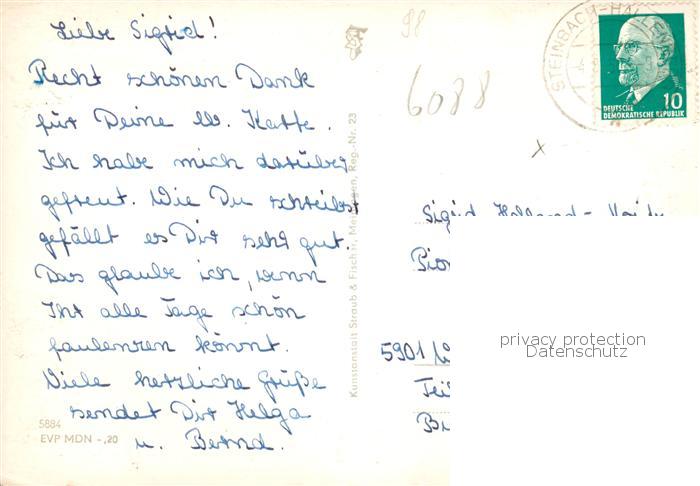 Liebe Sigrid!
Recht schönen Dank
für Deine lb. Karte.
Ich habe mich darüber
gefreut. Wie Du schreibst
gefällt es Dir sehr gut.
Das glaube ich, wenn
Ihr alle Tage schön
faulenzen könnt.
Viele herzliche Grüße
sendet Dir Helga
u. Bernd.
5884
EVP MDN -,20
Kunstanstalt Straub & Fischer, Meiningen, Reg.-Nr. 23
98
6088
x
STEINBACH-HALLENB
10
DEUTSCHE
DEMOKRATISCHE REPUBLIK
Sigrid
5901
privacy protection
Datenschutz